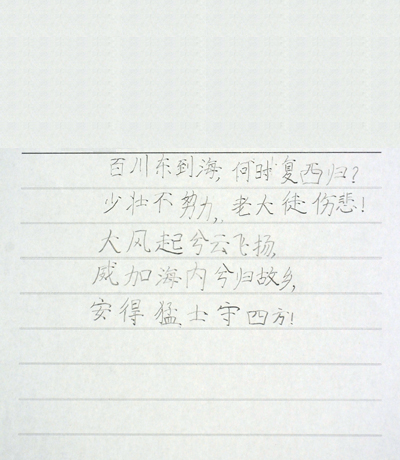 百川东到海,何时复西归?
少壮不努力,老大徒伤悲!
大风起兮云飞扬,
威加海内兮归故乡,
安得猛士守四方!